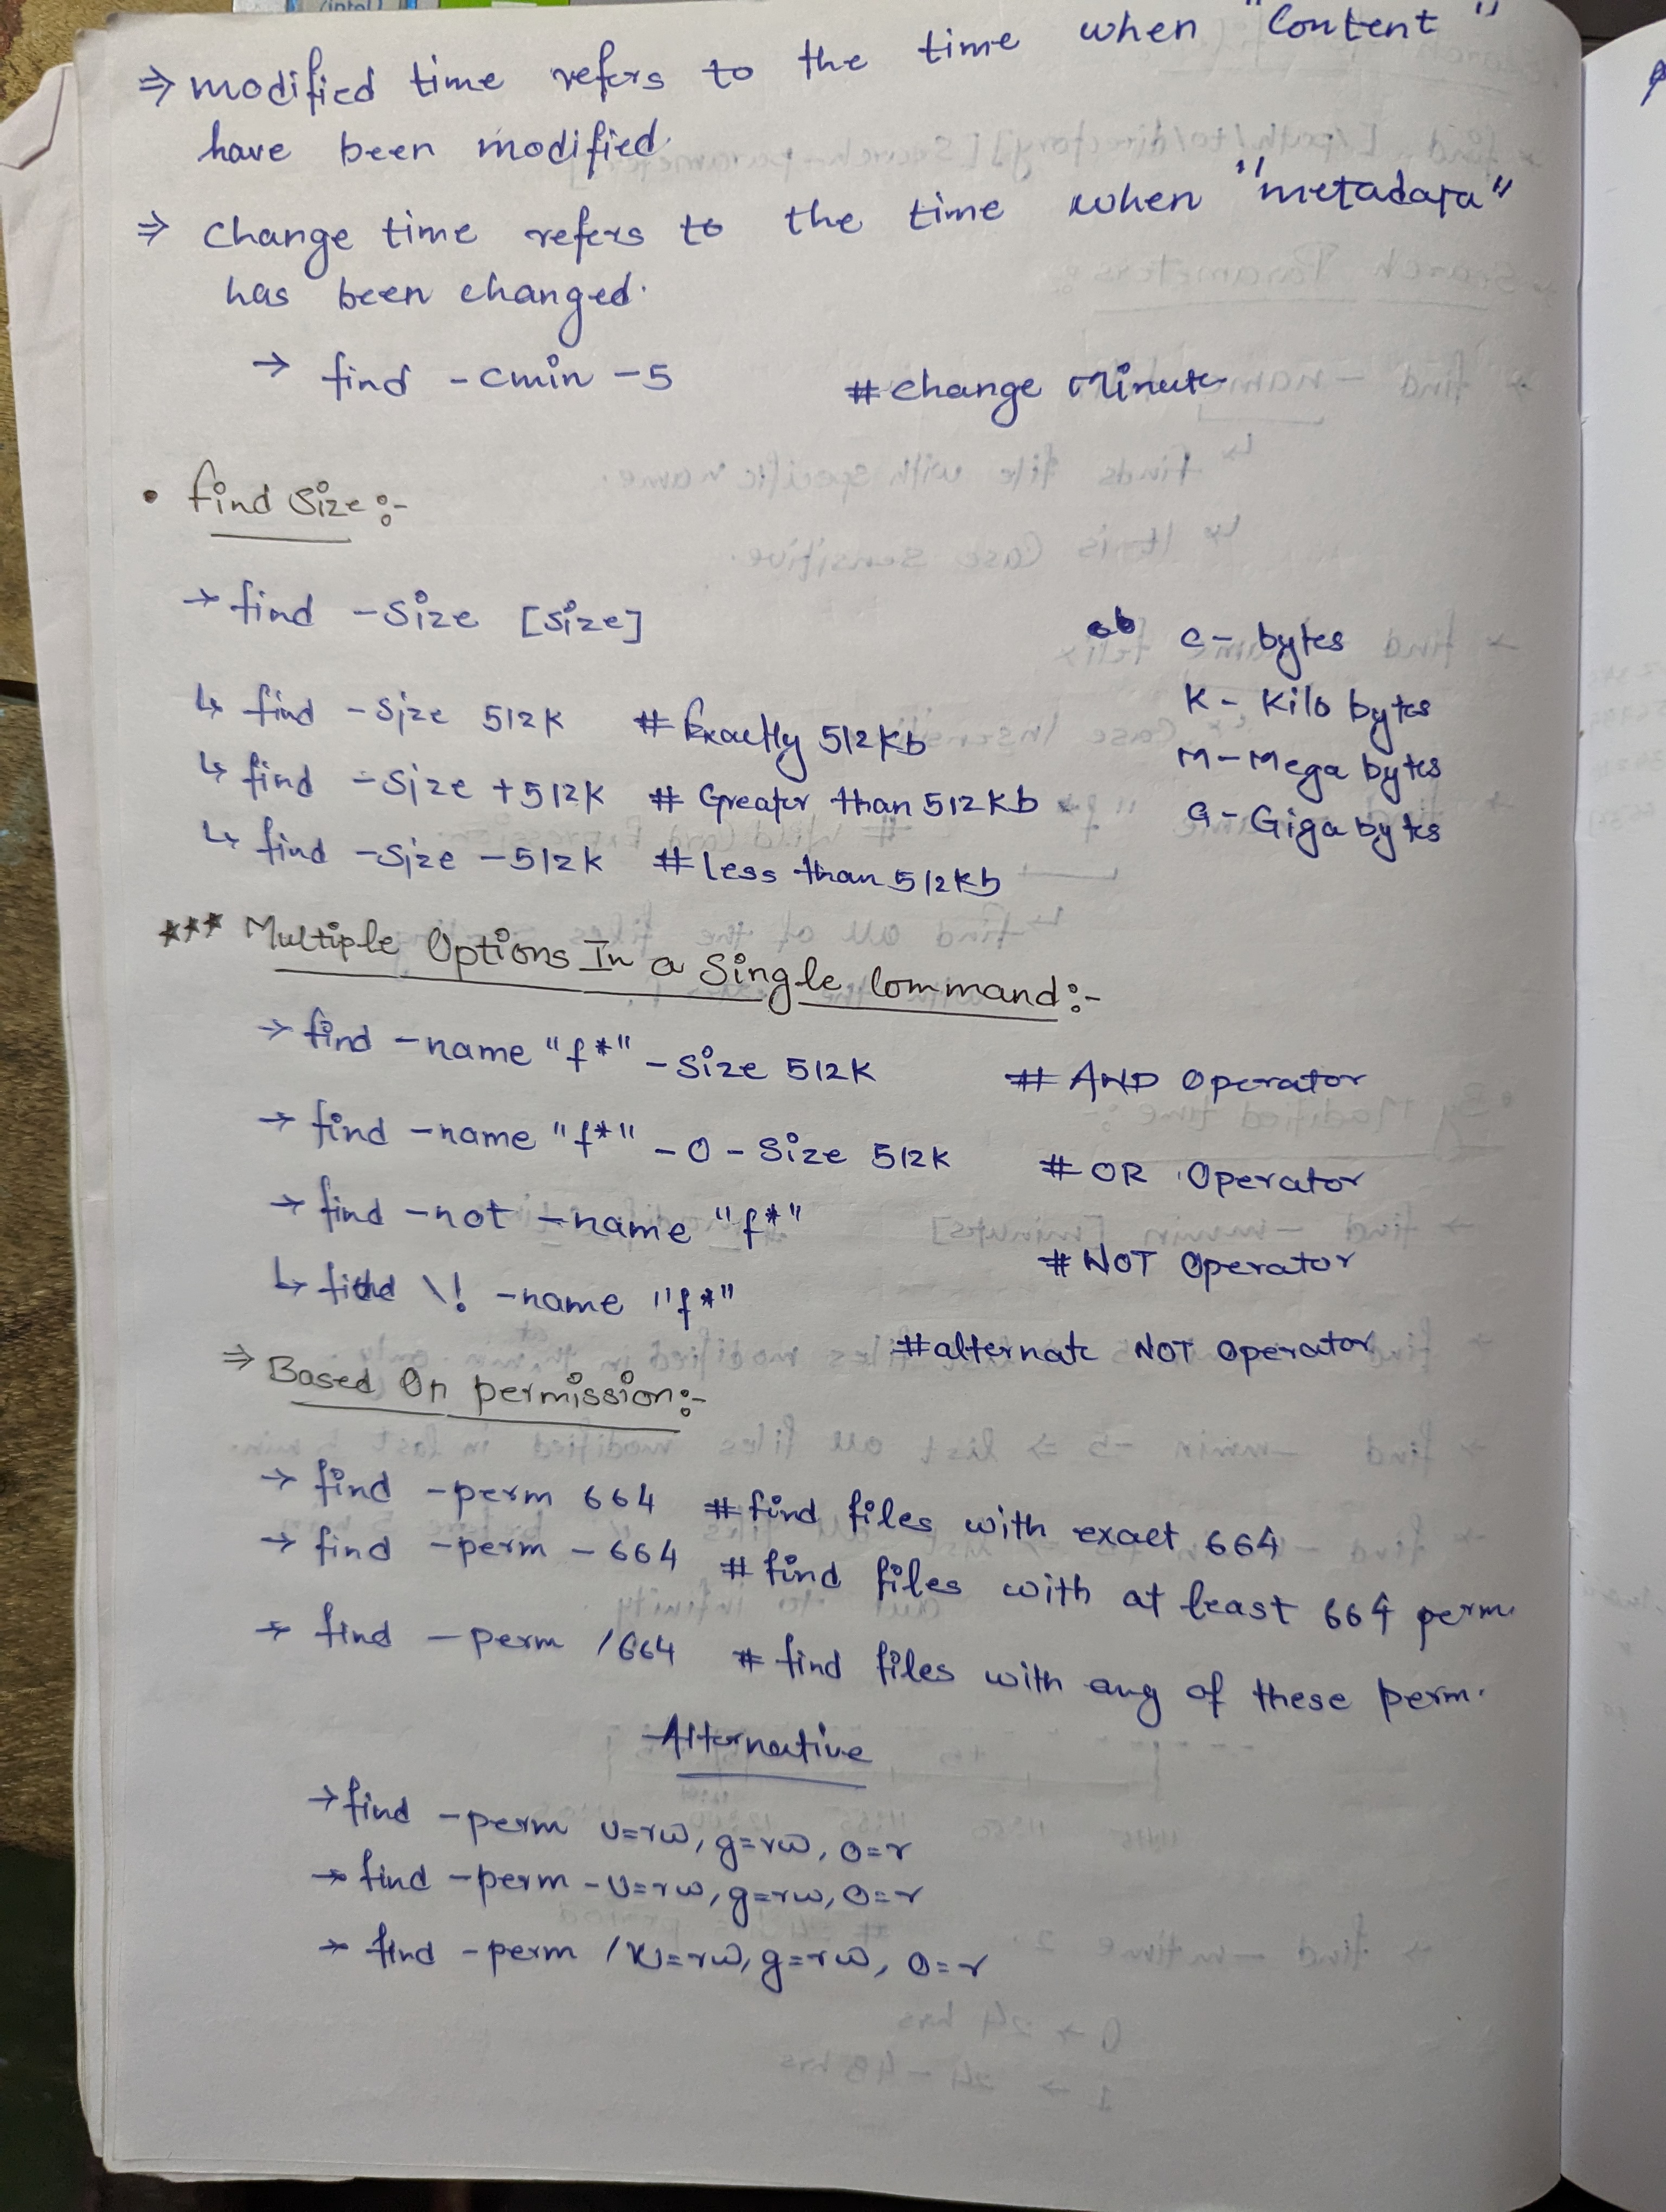 ⇒ modified time refers to the time when "Content"
have been modified.
⇒ Change time refers to the time when "metadata"
has been changed.
→ find -cmin -5 #change minute
• find Size:-
→ find -Size [Size]
c - bytes
↳ find -Size 512K #Exactly 512Kb
K - Kilo bytes
↳ find -Size +512K # Greater than 512Kb
M - Mega bytes
↳ find -Size -512K #less than 512Kb
G - Giga bytes
*** Multiple Options In a Single Command:-
→ find -name "f*" -Size 512K # AND Operator
→ find -name "f*" -O -Size 512K # OR Operator
→ find -not -name "f*" # NOT Operator
↳ find \! -name "f*" #alternate NOT Operator
⇒ Based On permission:-
→ find -perm 664 #find files with exact 664
→ find -perm -664 # find files with at least 664 perm.
→ find -perm /664 # find files with any of these perm.
Alternative
→ find -perm u=rw, g=rw, o=r
→ find -perm -u=rw, g=rw, o=r
→ find -perm /u=rw, g=rw, o=r